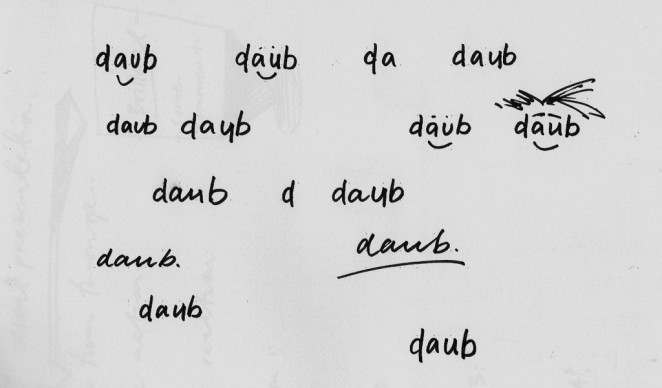 daub daub da daub
daub daub daub daub
daub d daub
daub. daub.
daub
daub